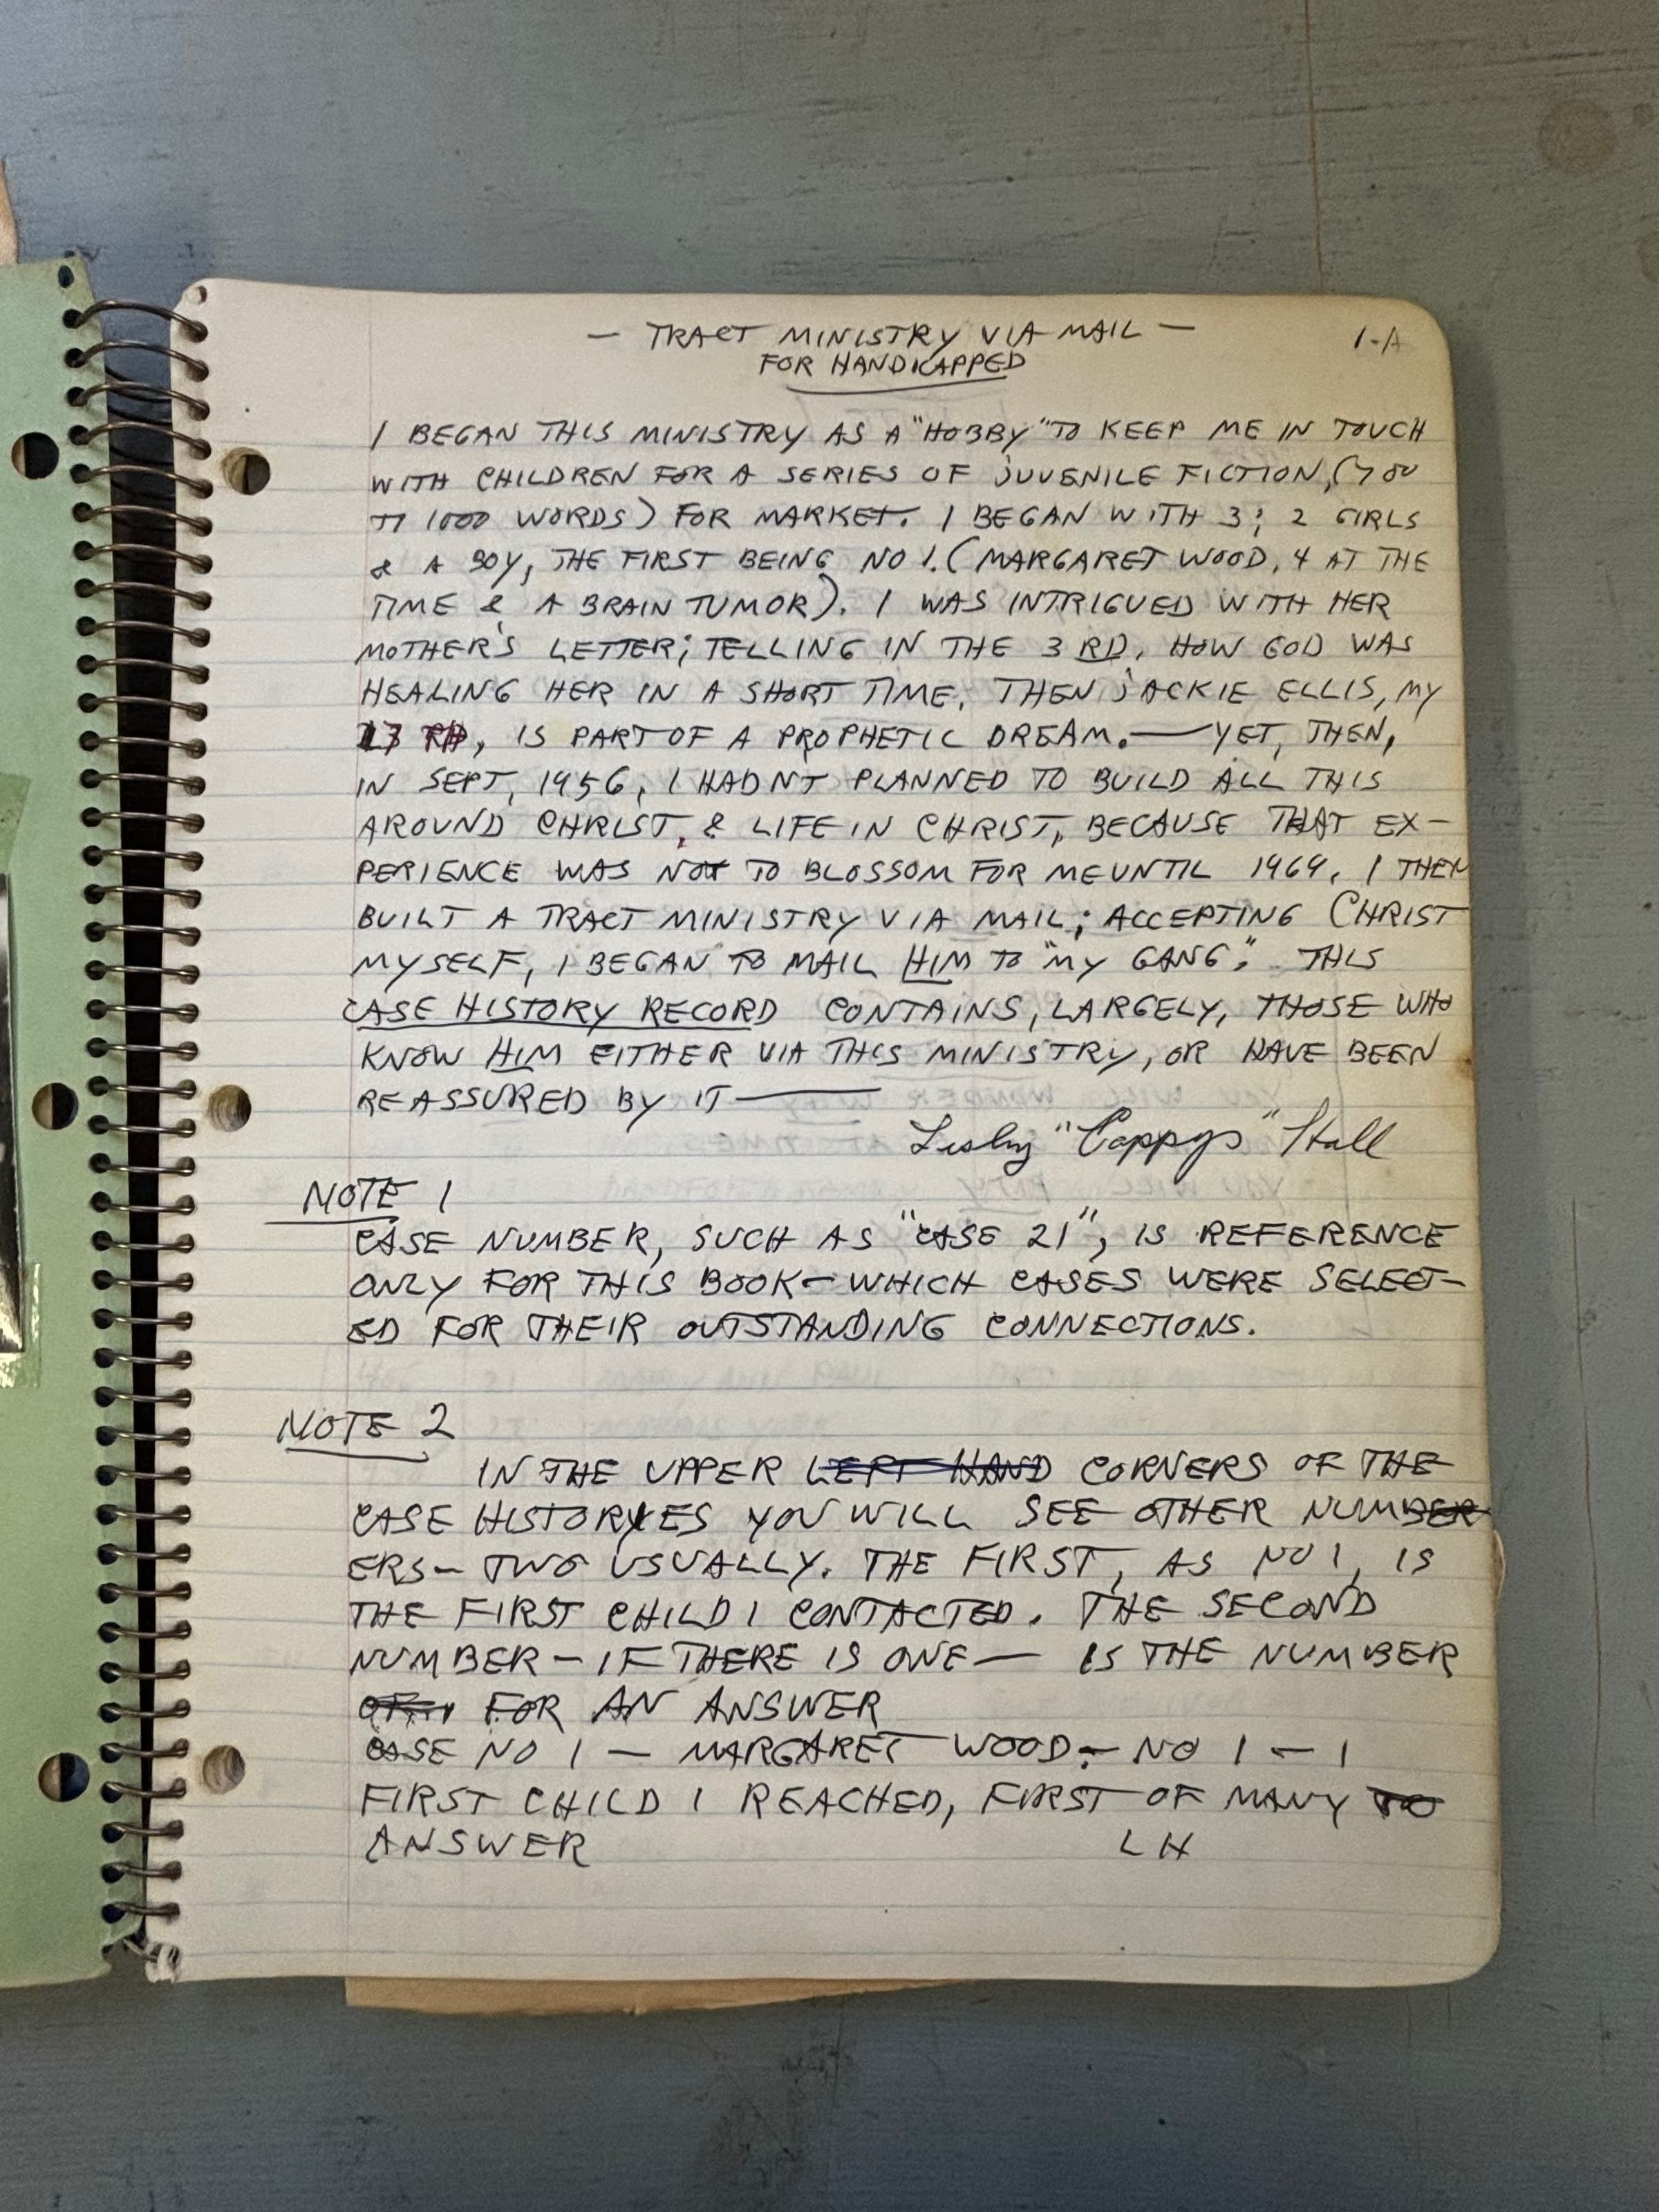 — TRACT MINISTRY VIA MAIL —
1-A
FOR HANDICAPPED
I BEGAN THIS MINISTRY AS A "HOBBY" TO KEEP ME IN TOUCH
WITH CHILDREN FOR A SERIES OF JUVENILE FICTION, (700
TO 1000 WORDS) FOR MARKET. I BEGAN WITH 3; 2 GIRLS
& A BOY, THE FIRST BEING NO 1. (MARGARET WOOD, 4 AT THE
TIME & A BRAIN TUMOR). I WAS INTRIGUED WITH HER
MOTHER'S LETTER; TELLING IN THE 3 RD, HOW GOD WAS
HEALING HER IN A SHORT TIME. THEN JACKIE ELLIS, MY
IS PART OF A PROPHETIC DREAM. — YET, THEN,
IN SEPT, 1956, I HADNT PLANNED TO BUILD ALL THIS
AROUND CHRIST, & LIFE IN CHRIST, BECAUSE THAT EX-
PERIENCE WAS NOT TO BLOSSOM FOR ME UNTIL 1969. I THEN
BUILT A TRACT MINISTRY VIA MAIL; ACCEPTING CHRIST
MYSELF, I BEGAN TO MAIL HIM TO "MY GANG". THIS
CASE HISTORY RECORD CONTAINS, LARGELY, THOSE WHO
KNOW HIM EITHER VIA THIS MINISTRY, OR HAVE BEEN
REASSURED BY IT —
"Cappys" Hall
NOTE 1
CASE NUMBER, SUCH AS "CASE 21", IS REFERENCE
ONLY FOR THIS BOOK — WHICH CASES WERE SELECT-
ED FOR THEIR OUTSTANDING CONNECTIONS.
NOTE 2
IN THE UPPER LEFT HAND CORNERS OF THE
CASE HISTORIES YOU WILL SEE OTHER NUMBER
ERS — TWO USUALLY. THE FIRST, AS NO 1, IS
THE FIRST CHILD I CONTACTED. THE SECOND
NUMBER — IF THERE IS ONE — IS THE NUMBER
FOR AN ANSWER
CASE NO 1 — MARGARET WOOD — NO 1 — 1
FIRST CHILD I REACHED, FIRST OF MANY TO
ANSWER LH